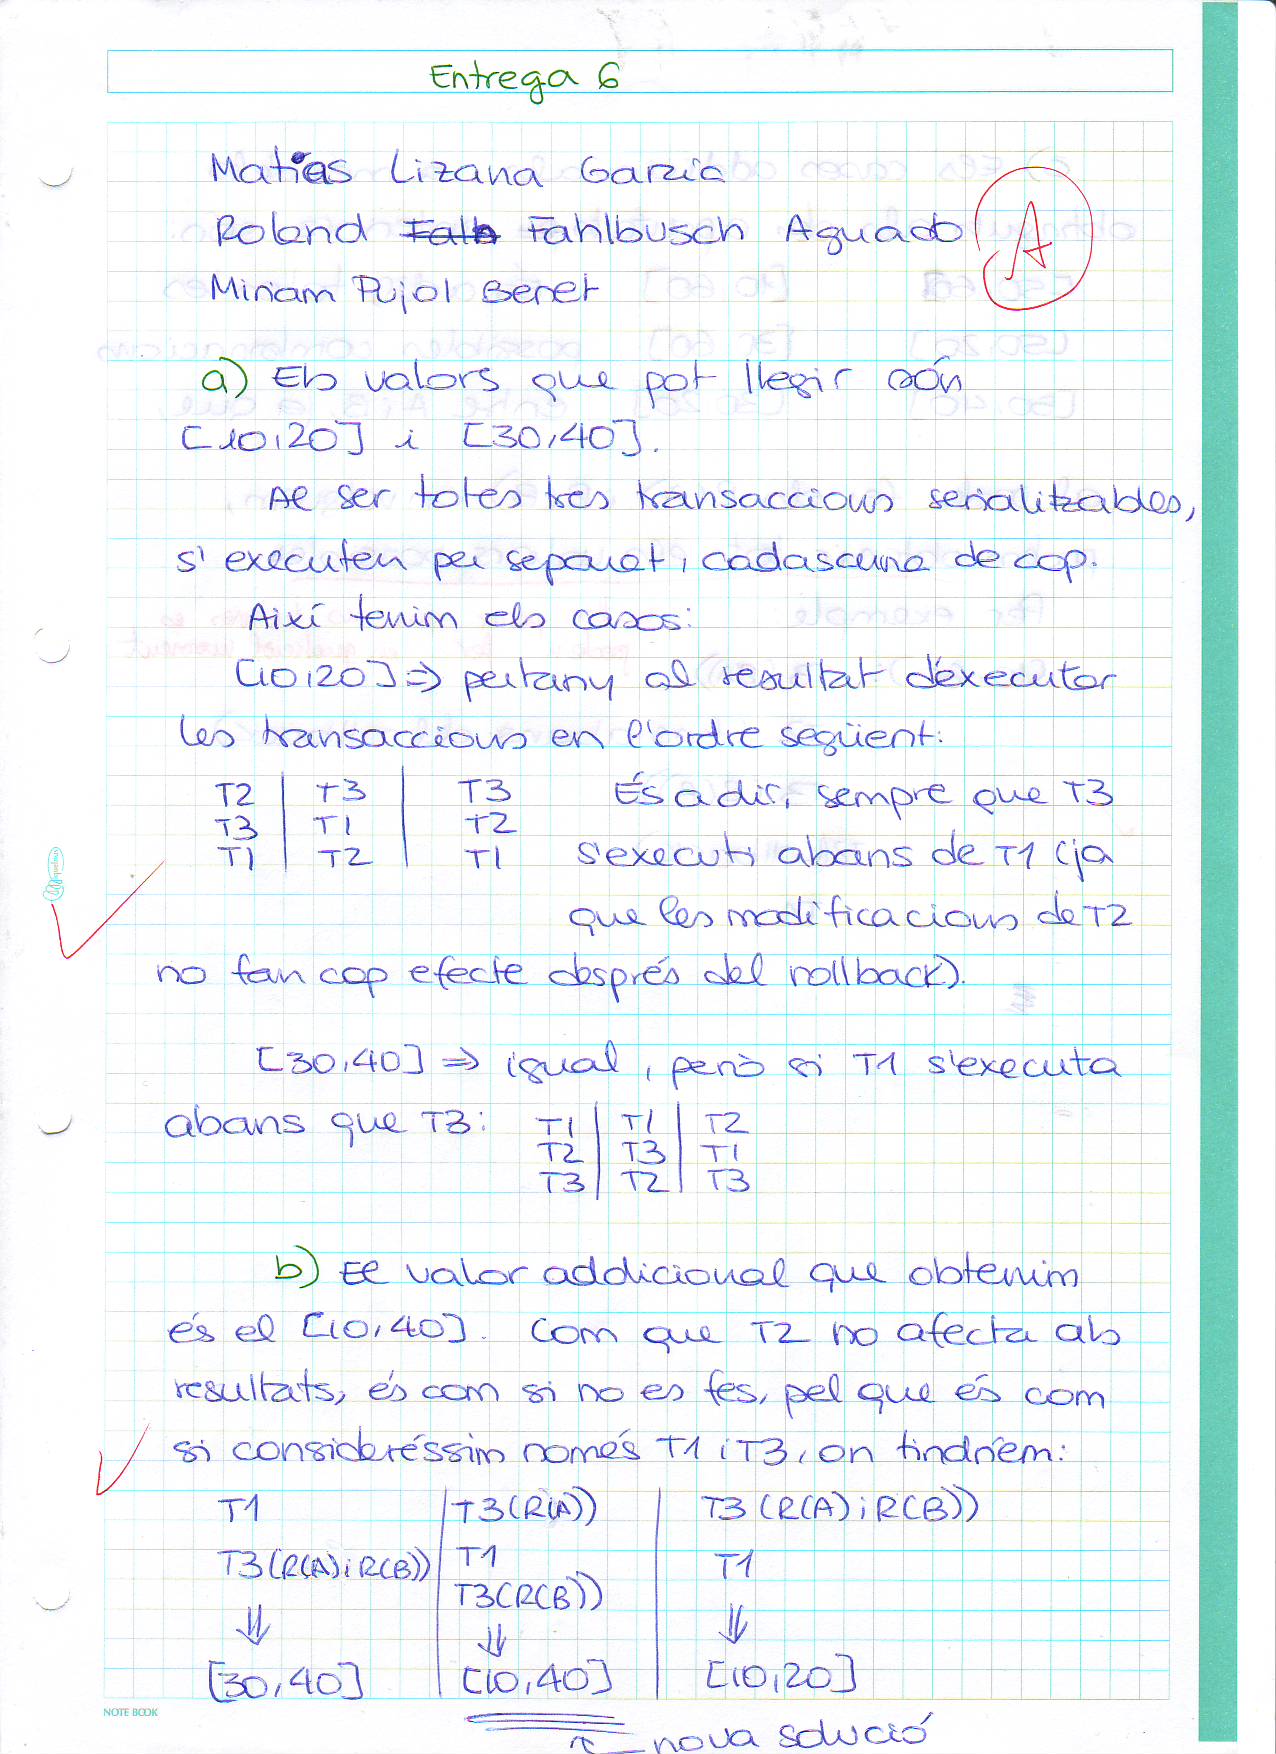 Entrega 6
Matias Lizana Garzia
Roland Fahlbusch Aguado
A
Miriam Pujol Benet
a) Els valors que pot llegir són
[10,20] i [30,40].
Al ser totes tres transaccions serialitzables,
s'executen per separat, cadascuna de cop.
Així tenim els casos:
[10,20] => pertany al resultat d'executar
les transaccions en l'ordre següent:
T2 | T3 | T3 És a dir, sempre que T3
T3 | T1 | T2
T1 | T2 | T1 s'executi abans de T1 (ja
que les modificacions de T2
no fan cap efecte després del rollback).
[30,40] => igual, però si T1 s'executa
abans que T3: T1 | T1 | T2
T2 | T3 | T1
T3 | T2 | T3
b) El valor addicional que obtenim
és el [10,40]. Com que T2 no afecta als
resultats, és com si no es fes, pel que és com
si consideréssim només T1 i T3, on tindríem:
T1 | T3(R(A)) | T3(R(A) i R(B))
T3(R(A) i R(B)) | T1 | T1
T3(R(B))
⇓ ⇓ ⇓
[30,40] | [10,40] | [10,20]
NOTE BOOK
nova solució